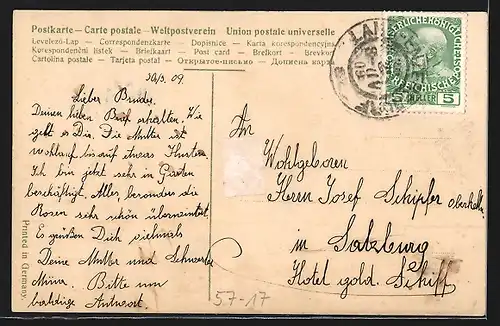 Postkarte – Carte postale – Weltpostverein – Union postale universelle
Levelező-Lap – Correspondenzkarte – Dopisnice – Karta korespondencyjna
Korespondenční lístek – Briefkaart – Post card – Brefkort – Brevkort
Cartolina postale – Tarjeta postal – Открытое письмо – Дописна карта
30/3. 09
Lieber Bruder.
Deinen lieben Brief erhalten. Wie
geht es Dir. Die Mutter ist
wohlauf bis auf etwas Husten.
Ich bin jetzt sehr in Garten
beschäftigt. Alles, besonders die
Rosen sehr schön überwintert.
Es grüßen Dich vielmals
Deine Mutter und Schwester
Minna. Bitte um
baldige Antwort.
An
Wohlgeboren
Herrn Josef Schipfer
in Salzburg
Hotel gold. Schiff
57-17
Printed in Germany.
5 HELLER 5